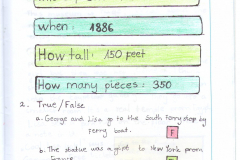 when: 1886
How tall: 150 peet
How many pieces: 350
2. True/False
a. George and Lisa go to the South Ferry stop by
ferry boat. F
b. The statue was a gift to New York from
France